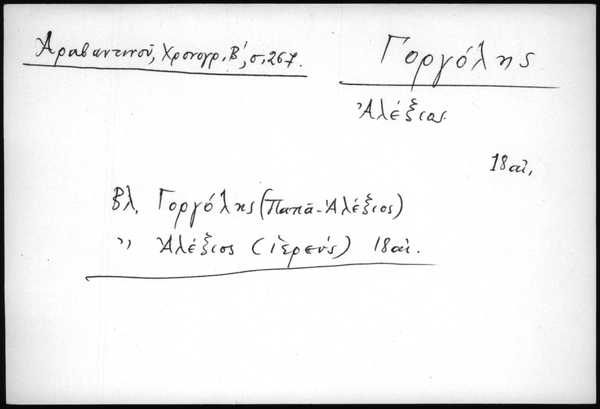 Ἀραβαντινοῦ, Χρονογρ. Β', σ. 267.
Γοργόλης
Ἀλέξιος
18 αἰ.
Βλ. Γοργόλης (Παπᾶ-Ἀλέξιος)
〃 Ἀλέξιος (ἱερεύς) 18 αἰ.